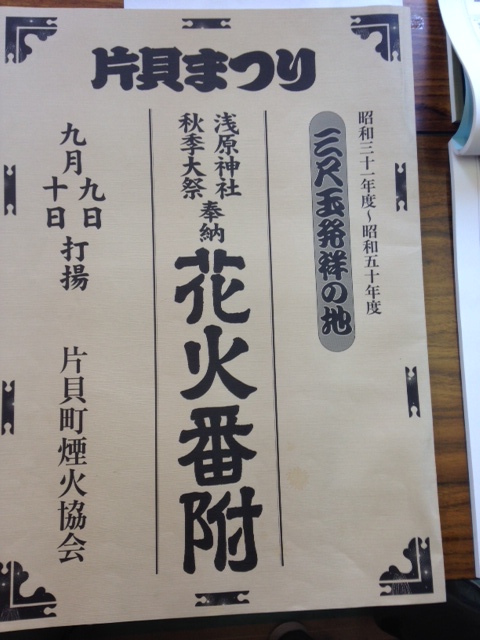 片貝まつり
昭和三十一年度～昭和五十年度
三尺玉発祥の地
浅原神社
秋季大祭
奉納
花火番附
九月九日
十日
打揚
片貝町煙火協会